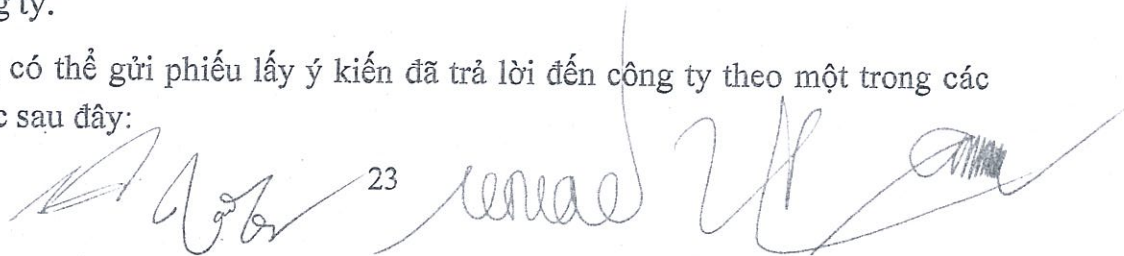 g ty.
có thể gửi phiếu lấy ý kiến đã trả lời đến công ty theo một trong các
c sau đây:
23